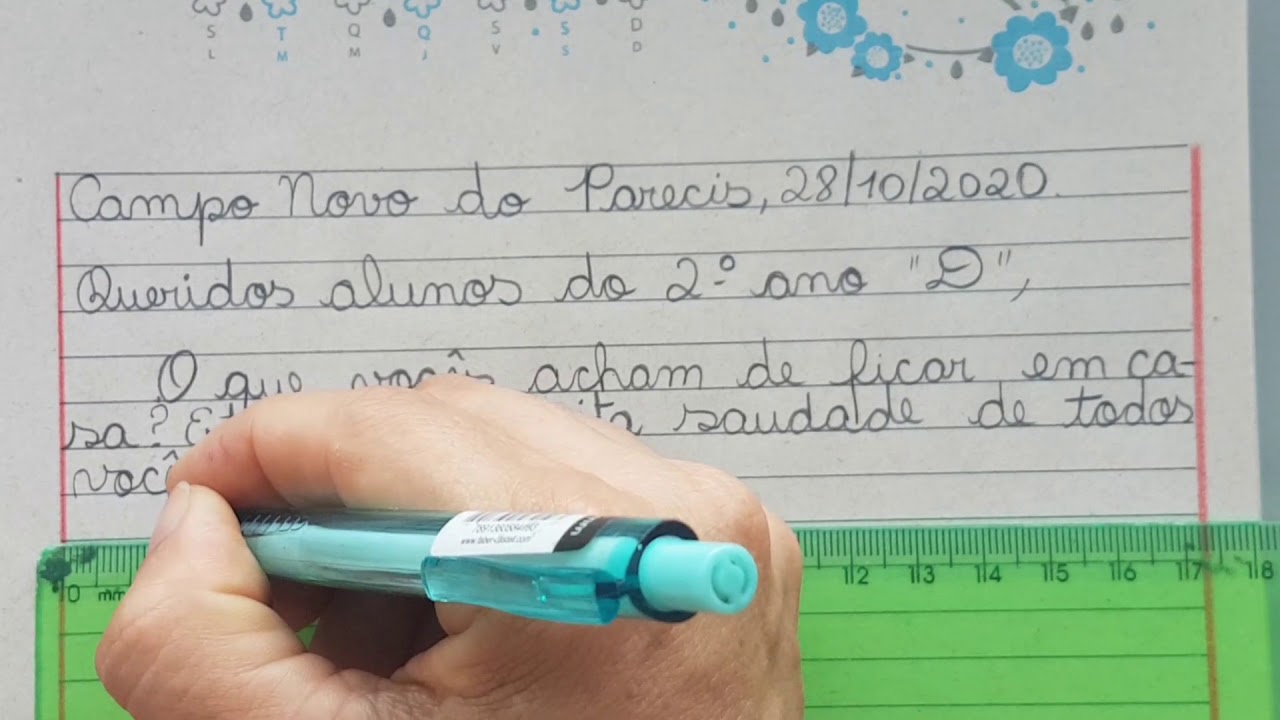 S T Q Q S S D
L M M J V S D
Campo Novo do Parecis, 28/10/2020.
Queridos alunos do 2.º ano "D",
O que vocês acham de ficar em ca-
sa? saudade de todos
0 mm 12 13 14 15 16 17 18